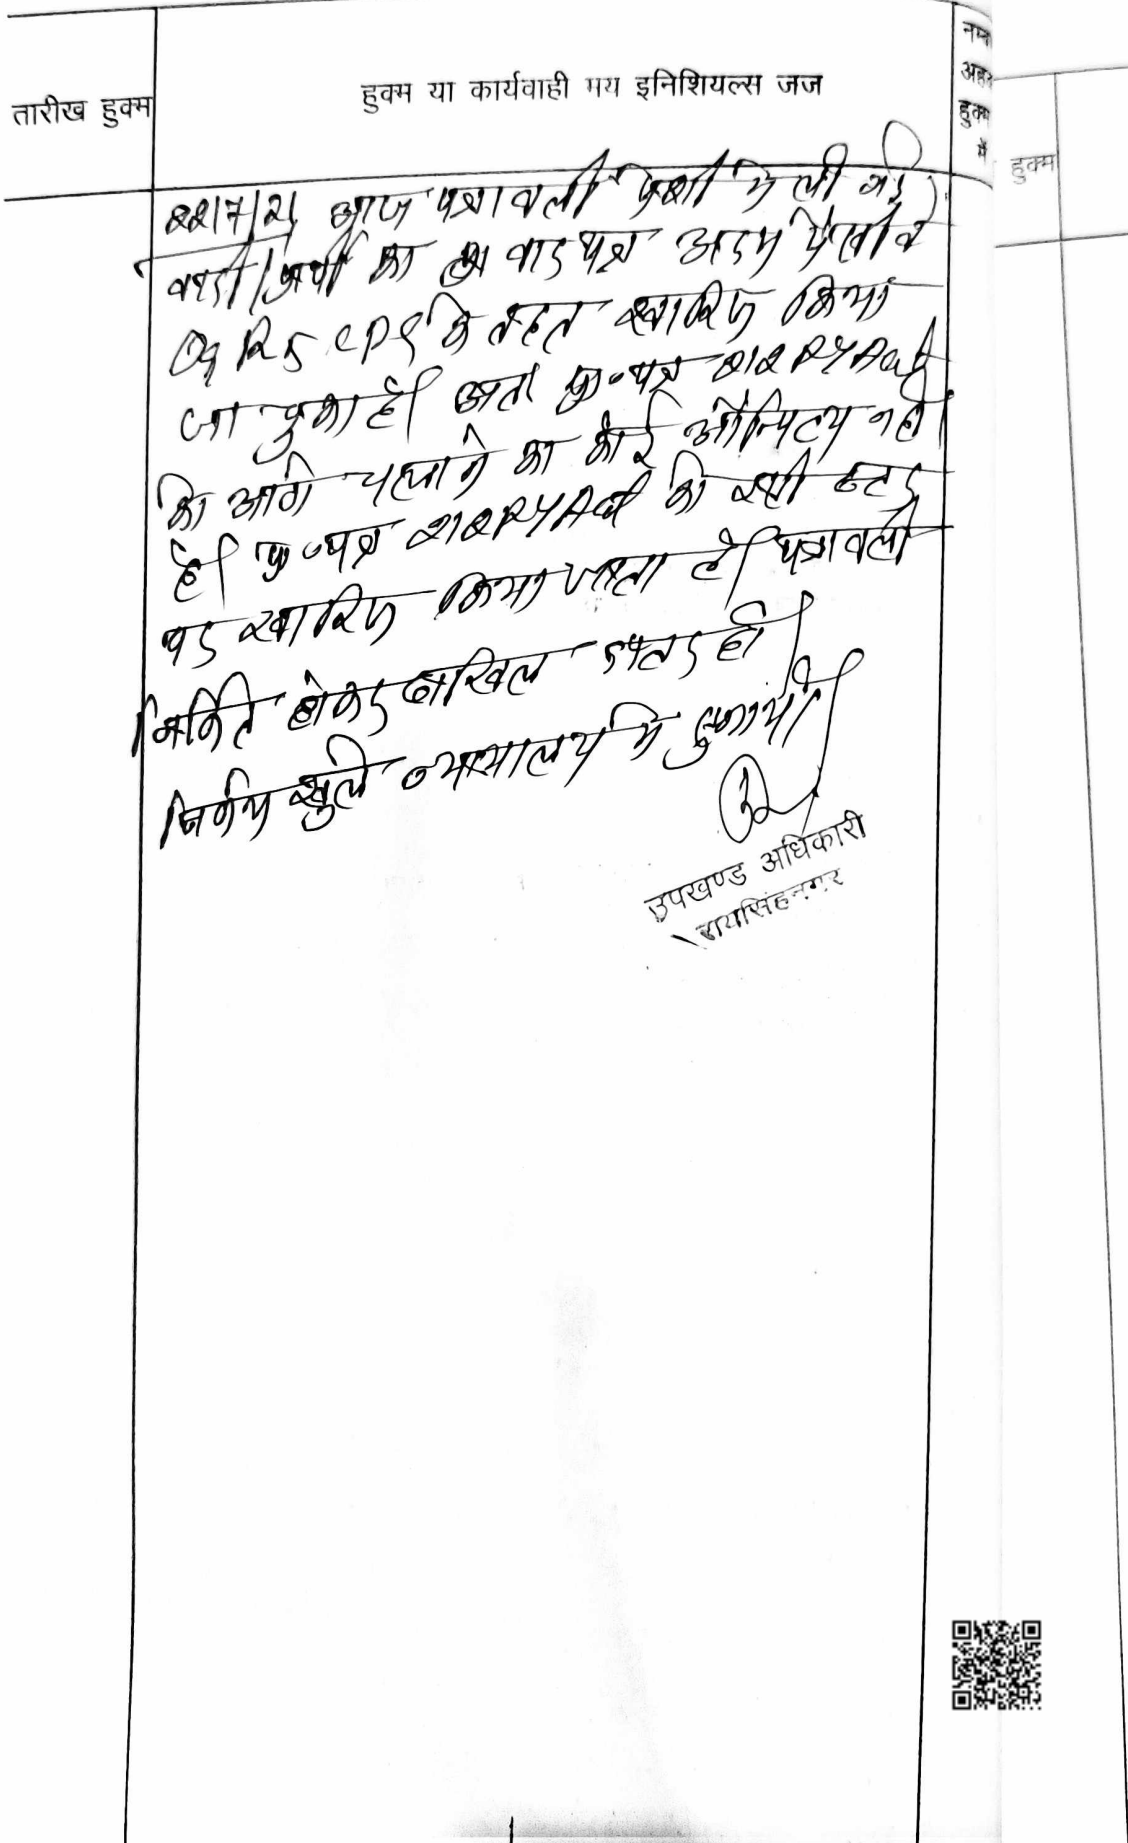 तारीख हुक्म
हुक्म या कार्यवाही मय इनिशियल्स जज
हुक्म
में
हुक्म
22/7/21 आज पत्रावली पेशी में ली गई।
वादी/प्रार्थी का वाद पत्र अदम पैरवी व
CPC के तहत खारिज किया
जा चुका है। अतः प्रा०पत्र 212 RT Act
को आगे चलाने का कोई औचित्य नहीं
है। प्रा०पत्र 212 RT Act को इसी स्टेज
पर खारिज किया जाता है। पत्रावली
निर्णित होकर दाखिल दफ्तर हो।
निर्णय खुले न्यायालय में सुनाया।
उपखण्ड अधिकारी
रायसिंहनगर